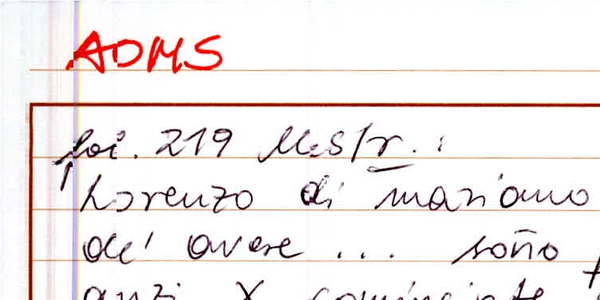 ADMS
foi. 219 Mestr.:
Lorenzo di mariano
de' avere ... sono
anzi X cominciate